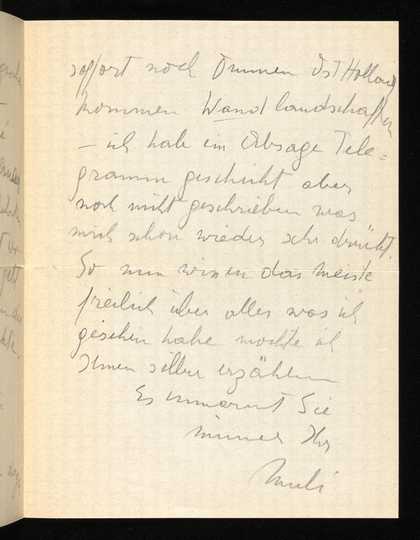 soffort noch Ommen Ost Holland
kommen Wandlandschaften
– ich habe ein Absage Tele=
gramm geschickt aber
noch nicht geschrieben was
mich schon wieder sehr drückt.
So nun wissen das meiste
freilich über alles was ich
gesehen habe möchte ich
Ihnen selber erzählen
Es umarmt Sie
immer Ihr